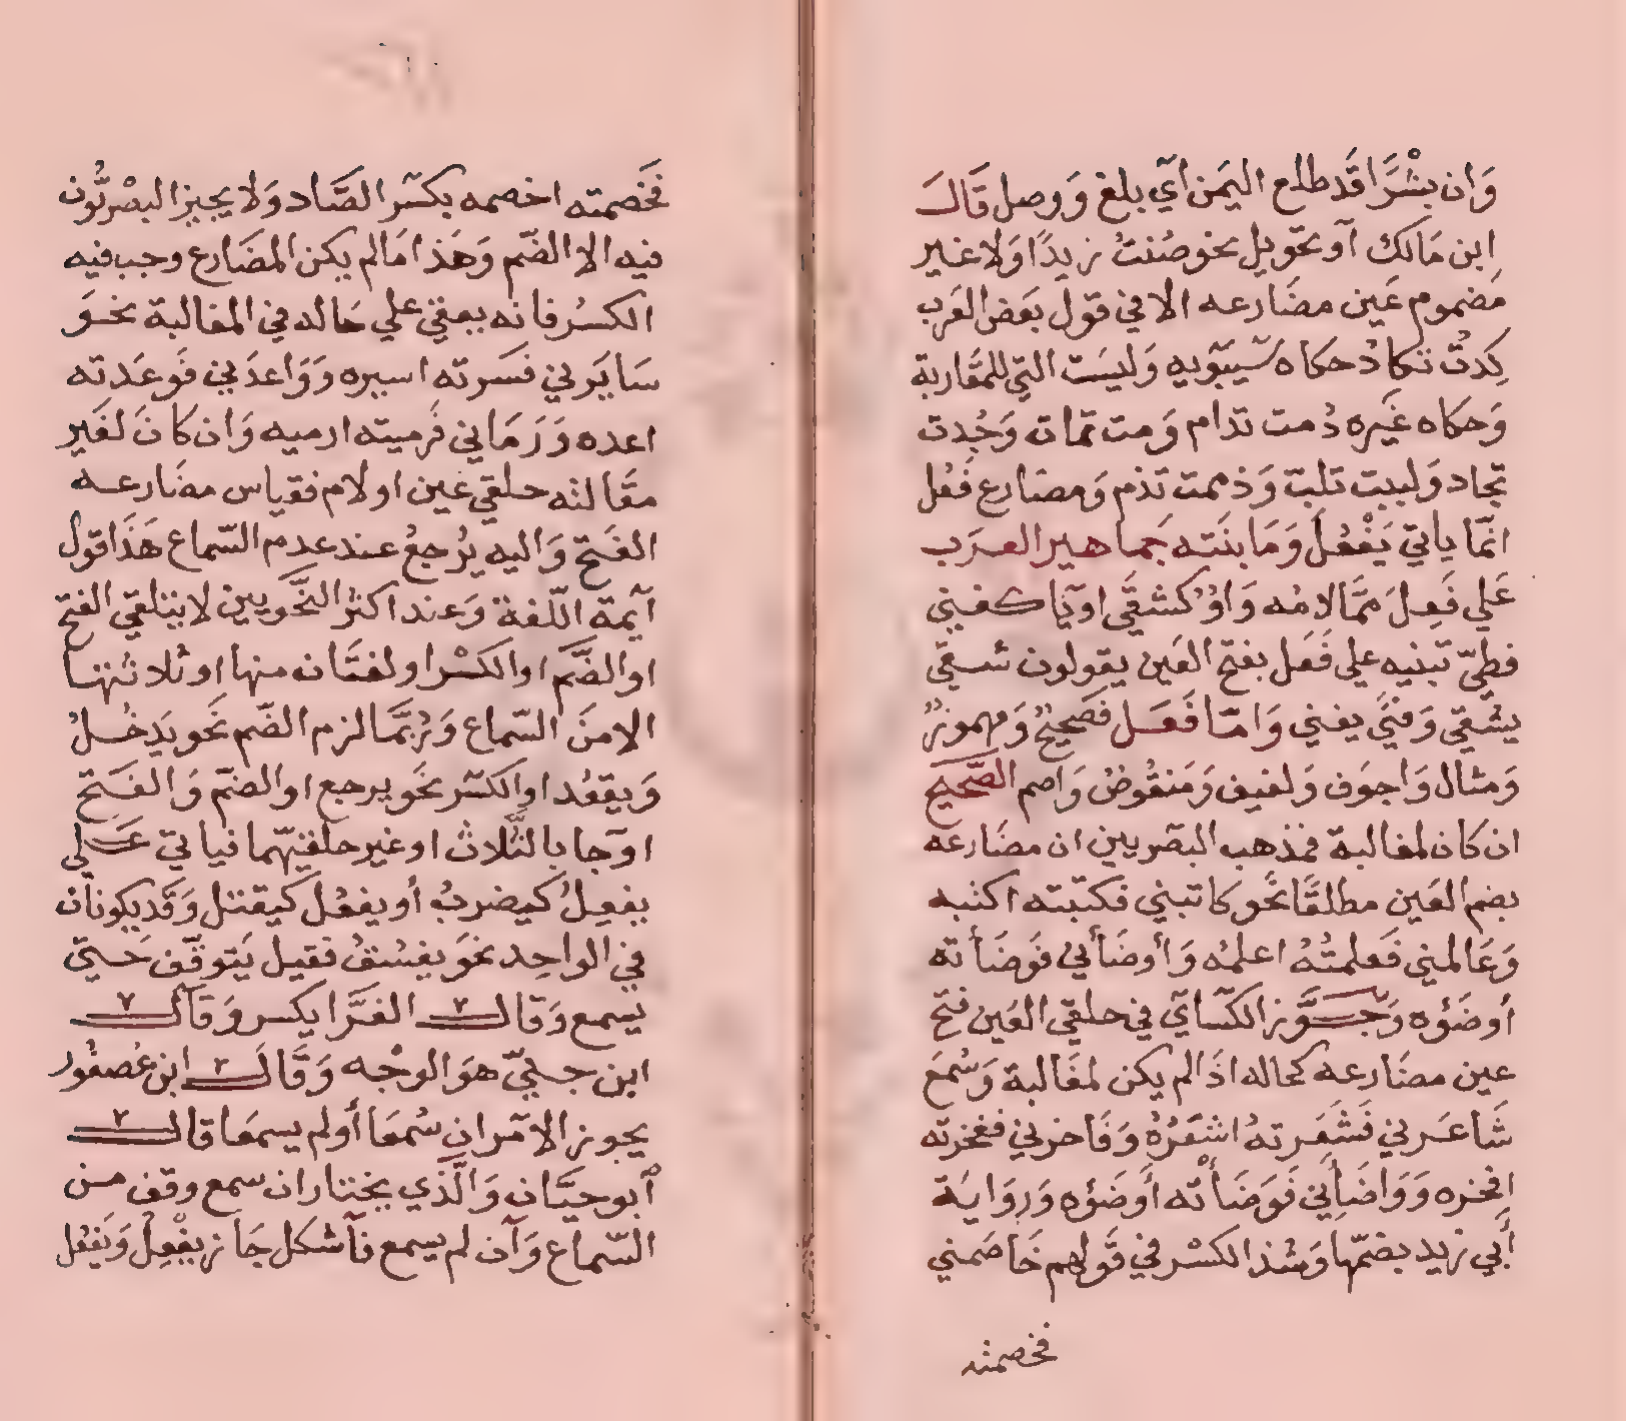 وَان بشْرًا قَد طلع اليَمن اَي بلغ وَ وصل قَالَ
اِبن مَالك اَو تحَويل نحو صُنتُ زيدًا وَلا غير
مَضموم عَين مضَارعه الا في قول بعَض العَرب
كِدتُ تكادُ حكاه سيبَويه وَليسَت التي للمقاربة
وَحكاه غَيره دُمت تدام وَمت تمات وَجُدت
تجاد وَلببت تلبّ وَذممت تذم وَمضارع فَعُل
انّما ياتي يَفْعُل وَمَا بنَته جَماهير العرَب
عَلي فَعِلَ ممَّا لامُه وَاوٌ كشقَي اويَا كغني
فطيّ تبنيه علي فَعَل بفتح العَين يقولون شقي
يشقي وَفنَي يفني وَامّا فَعَل فصَحيحٌ وَمهموزٌ
وَمثال وَاجوَف وَلفيف وَمَنقُوصٌ وَاصم الصَّحيح
ان كان لمغالبة فمذهب البصَريين ان مضَارعه
بضم العَين مطلقًا نحَو كاتبني فكتَبته اكتبه
وَعَالمني فَعلمتُهُ اعلمُه وَاَوضَأني فوَضَأته
أوضَؤه وَجوَّز الكسَاي في حلقي العَين فتح
عين مضَارعه كحاله اذَا لم يكن لمغَالبة وَسُمعَ
شَاعَرني فَشَعَرتهُ اشعَرُهُ وَفَاخرني ففخرته
افخره وَوَاضَأني فَوَضَأْته أَوضَؤه وَروَاية
أَبي زيد بضمّها وَشذ الكسْر في قَولهم خَاصَمني
فخصمته
فخَصمته اخصمه بكسَر الصَّاد وَلا يجيز البصْريُّون
فيه الا الضَم وَهَذا مَا لم يكن المضَارع وجب فيه
الكسرُ فانه يبقي علي حَاله في المغالبة نحوَ
سَايَرني فسَرته اسيره وَوَاعدَني فَوعَدته
اعده وَرَمَاني فرَميته ارميه وَان كانَ لغَير
مغَالبة حلقي عين او لام فقياس مضَارعه
الفَتح وَاليه يُرجعُ عند عدم السّماع هَذَا قول
آيمة اللّغة وَعند اكثر النَّحَويين لا يتلقي الفتح
او الضَّم او الكسْر او لغتَان منها او ثلاثتها
الا منَ السّماع وَرُبمَّا لزم الضَم نحَو يَدخُلُ
وَيقعُد او الكَسر نحَو يرجع او الضَم وَالفَتح
اوَجا بالثُّلاث او غير حلقيّهما فياتي عَلي
يفعِلُ كيضربُ أو يفعُل كيَقتل وَقَد يكونان
في الواحِد نحوَ يفسُقُ فقيل يَتوقَّف حَتي
يسمع وَقال الفَرَّا يكسر وَقَال
ابن جنيّ هوَ الوجْه وَقَّالَ ابن عُصفُور
يجوز الامَران سُمعَا أَو لم يسمعَا قال
أَبو حيَّان وَالَّذي يختار ان سمع وقف من
السّماع وَاَن لم يسمع فاَشكل جَاز يفْعِلُ وَيَفعُل